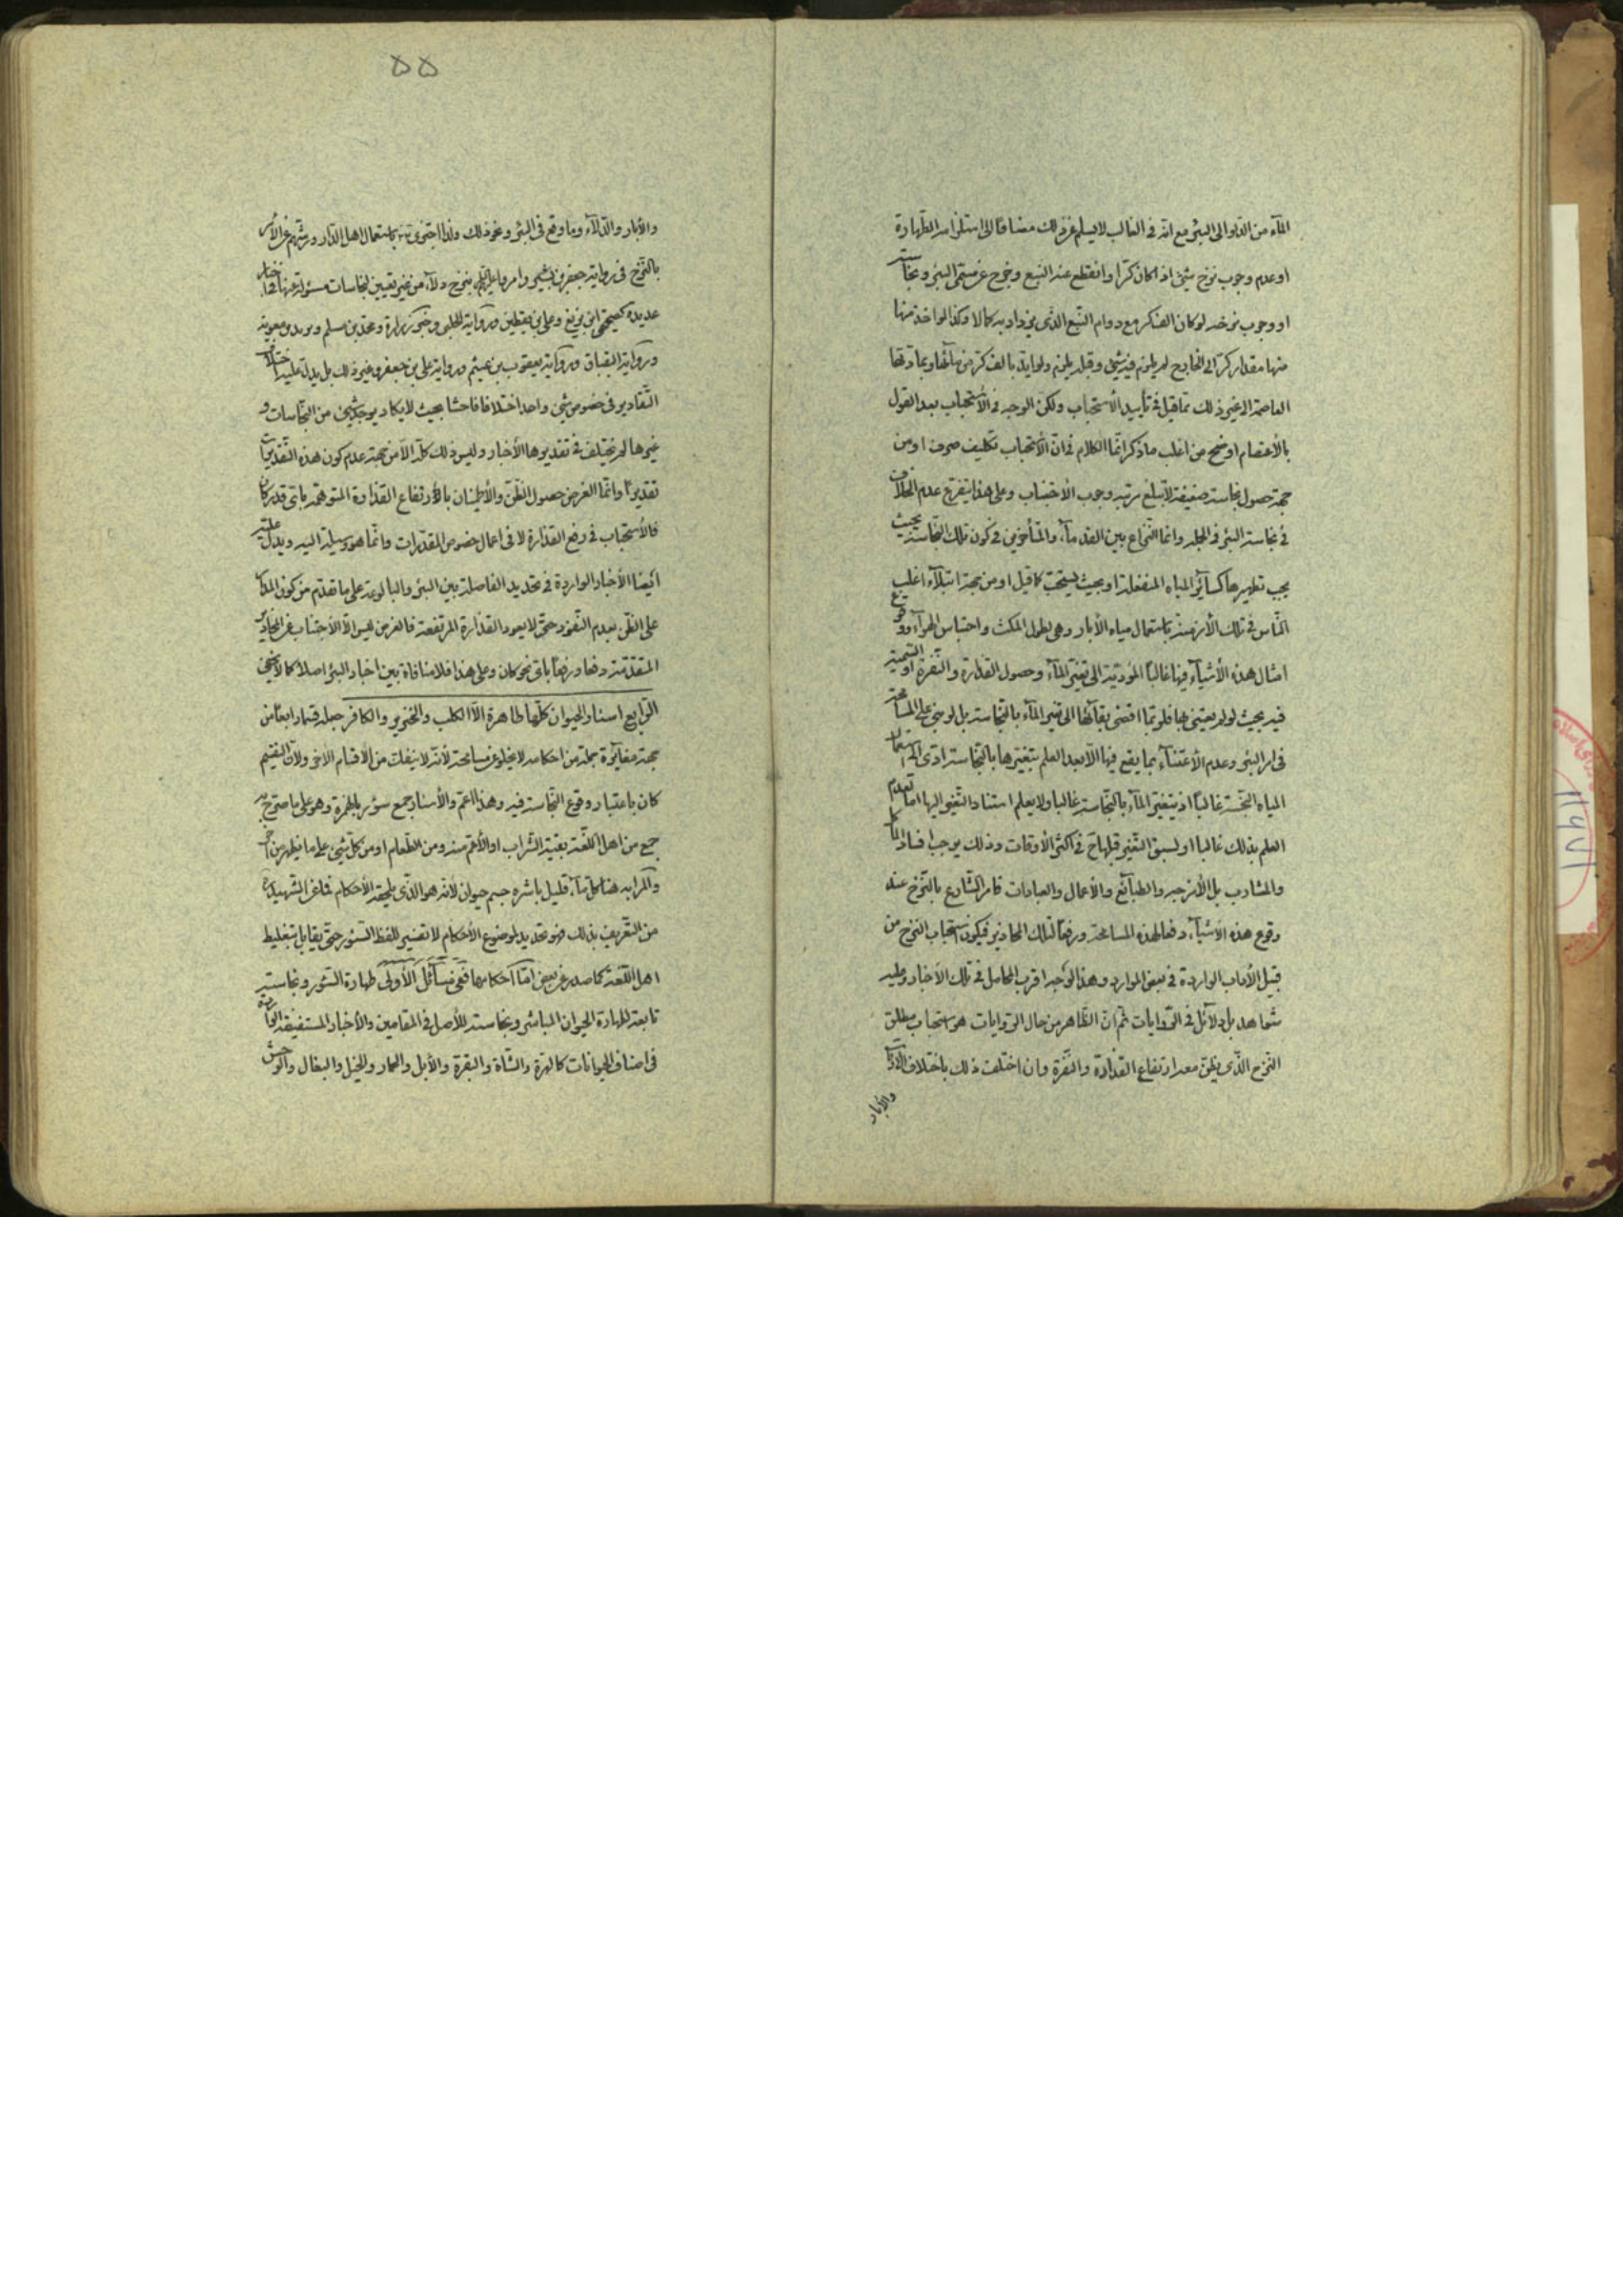 المآء من الدلو الى البئر مع انه فى الغالب لا يسلم عن ذلك مضافا الى استلزامه الطهارة
او عدم وجوب نزح شئ اذا كان كرا وانقطع عنه النبع وخرج عن مسمى البئر ونجاسته
او وجوب نزحه لو كان الف كر مع دوام النبع الذى يزداد به كمالا وكذا لو اخذ منها
منها مقدار كر الى الخارج لم يلزم فيه شئ وقبله يلزم ولو ايد بالف كر من مآئها وبمادتها
العاصمة الى غير ذلك مما قيل فى تأييد الأستحباب ولكن الوجه فى الأستحباب بعد القول
بالأعتصام اوضح من اغلب ما ذكر انما الكلام فى ان الأستحباب تكليف صرف او من
جهة حصول نجاسة ضعيفة لا تبلغ مرتبة وجوب الأجتناب وعلى هذا يتفرع عدم الخلاف
فى نجاسة البئر فى الجملة وانما النزاع بين القدمآء والمتأخرين فى كون تلك النجاسة بحيث
يجب تطهيرها كسآئر المياه المنفعلة او بحيث يستحب كما قيل او من جهة ابتلآء اغلب
الناس فى تلك الأزمنة باستعمال مياه الأبار وهى بطول المكث واحتباس الهوآء ووقوع
امثال هذه الأشيآء فيها غالبا المؤدية الى تغير المآء وحصول القذارة والنفرة او السمية
فيه بحيث لو لم يعتنى بها فلربما افضى بقآئها الى تغير المآء بالنجاسة بل لو بنى على المسامحة
فى امر البئر وعدم الأعتنآء بما يقع فيها الا بعد العلم بتغيرها بالنجاسة ادى الى استعمال
المياه النجسة غالبا اذ يتغير المآء بالنجاسة غالبا ولا يعلم استناد التغير اليها اما لعدم
العلم بذلك غالبا او لسبق التغير قبلها فى اكثر الأوقات وذلك يوجب افساد المآكل
والمشارب بل الأمزجة والطبآئع والأعمال والعبادات فامر الشارع بالنزح عند
وقوع هذه الأشيآء دفعا لهذه المسامحة ورفعا لتلك المحاذير فيكون استحباب النزح من
قبيل الأداب الواردة فى بعض الموارد وهذا الوجه اقرب المحامل فى تلك الأخبار وعليه
شواهد بل دلآئل فى الروايات ثم ان الظاهر من حال الروايات هو استحباب مطلق
النزح الذى يظن معه ارتفاع القذارة والنفرة وان اختلف ذلك باختلاف
والأبار
۵۵
والأبار والدلآء وما وقع فى البئر ونحو ذلك ولذا اجتزى باستعمال اهل الدار ورشهم عن الأمر
بالنزح فى رواية جعفر بن بشير وامر بنزح دلآء من غير تعيين لنجاسات مسئولة عنها فى اخبار
عديدة كصحيحى ابن بزيغ وعلى بن يقطين ورواية الحلبى وخبر زرارة ومحمد بن مسلم وبريد بن معوية
ورواية البقباق ورواية يعقوب بن عيثم ورواية على بن جعفر وغير ذلك بل يدل عليه اختلاف
التقادير فى خصوص شئ واحد اختلافا فاحشا بحيث لا يكاد يوجد شئ من النجاسات و
غيرها لم يختلف فى تقديرها الأخبار وليس ذلك كله الا من جهة عدم كون هذه التقديرات
تقديرا وانما الغرض حصول الظن والأطمينان بالأرتفاع القذارة المتوهمة باى قدر كان
فالأستحباب فى رفع القذارة لا فى اعمال خصوص المقدرات وانما هو وسيلة اليه ويدل عليه
ايضا الأخبار الواردة فى تحديد الفاصلة بين البئر والبالوعة على ما تقدم من كون المدار
على الظن بعدم النفوذ حتى لا يعود القذارة المرتفعة فالغرض ليس الا الأجتناب عن المحاذير
المتقدمة دفعا ورفعا باى نحو كان وعلى هذا فلا منافاة بين اخبار البئر اصلا كما لا يخفى
الرابع اسئار الحيوان كلها طاهرة الا الكلب والخنزير والكافر جعله قسما رابعا من
جهة مغآيرة جملة من احكامه لا يخلو عن مسامحة لأنه لا ينفك من الأقسام الأخر ولأن التقسيم
كان باعتبار وقوع النجاسة فيه وهذا اعم والأسئار جمع سؤر بالهمزة وهو على ما صرح به
جمع من اهل اللغة بقية الشراب او الأعم منه ومن الطعام او من كل شئ على ما يظهر من اخر
والمراد به هنا كل مآء قليل باشره جسم حيوان لأنه هو الذى يلحقه الأحكام فما عن الشهيد
من التعريف بذلك فهو تحديد لموضوع الأحكام لا تفسير للفظ السئور حتى يقابل بتغليط
اهل اللغة كما صدر عن بعض اما احكامها ففى مسآئل الأولى طهارة السئور ونجاسته
تابعة لطهارة الحيوان المباشر ونجاسته للأصل فى المقامين والأخبار المستفيضة الواردة
فى اصناف الحيوانات كالهرة والشاة والبقرة والأبل والحمار والخيل والبغال والوحش